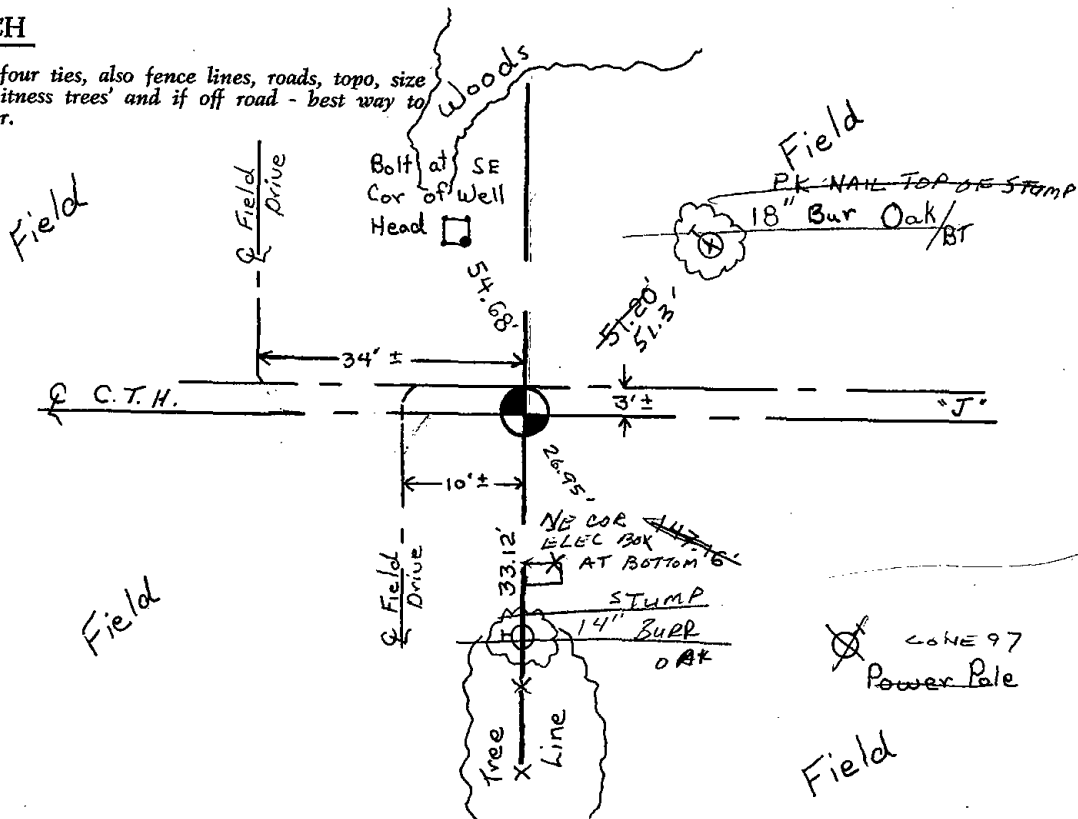 CH
four ties, also fence lines, roads, topo, size
itness trees' and if off road - best way to
r.
Woods
Field
℄ Field
Drive
Bolt at SE
Cor of Well
Head
Field
P.K NAIL TOP OF STUMP
18" Bur Oak/
BT
54.68'
51.20'
51.3'
34' ±
℄ C. T. H.
3' ±
"J"
10' ±
26.95'
NE COR
ELEC BOX
AT BOTTOM
147.16'
33.12'
℄ Field
Drive
STUMP
14" BURR
OAK
Field
GONE 97
Power Pole
Tree
Line
Field